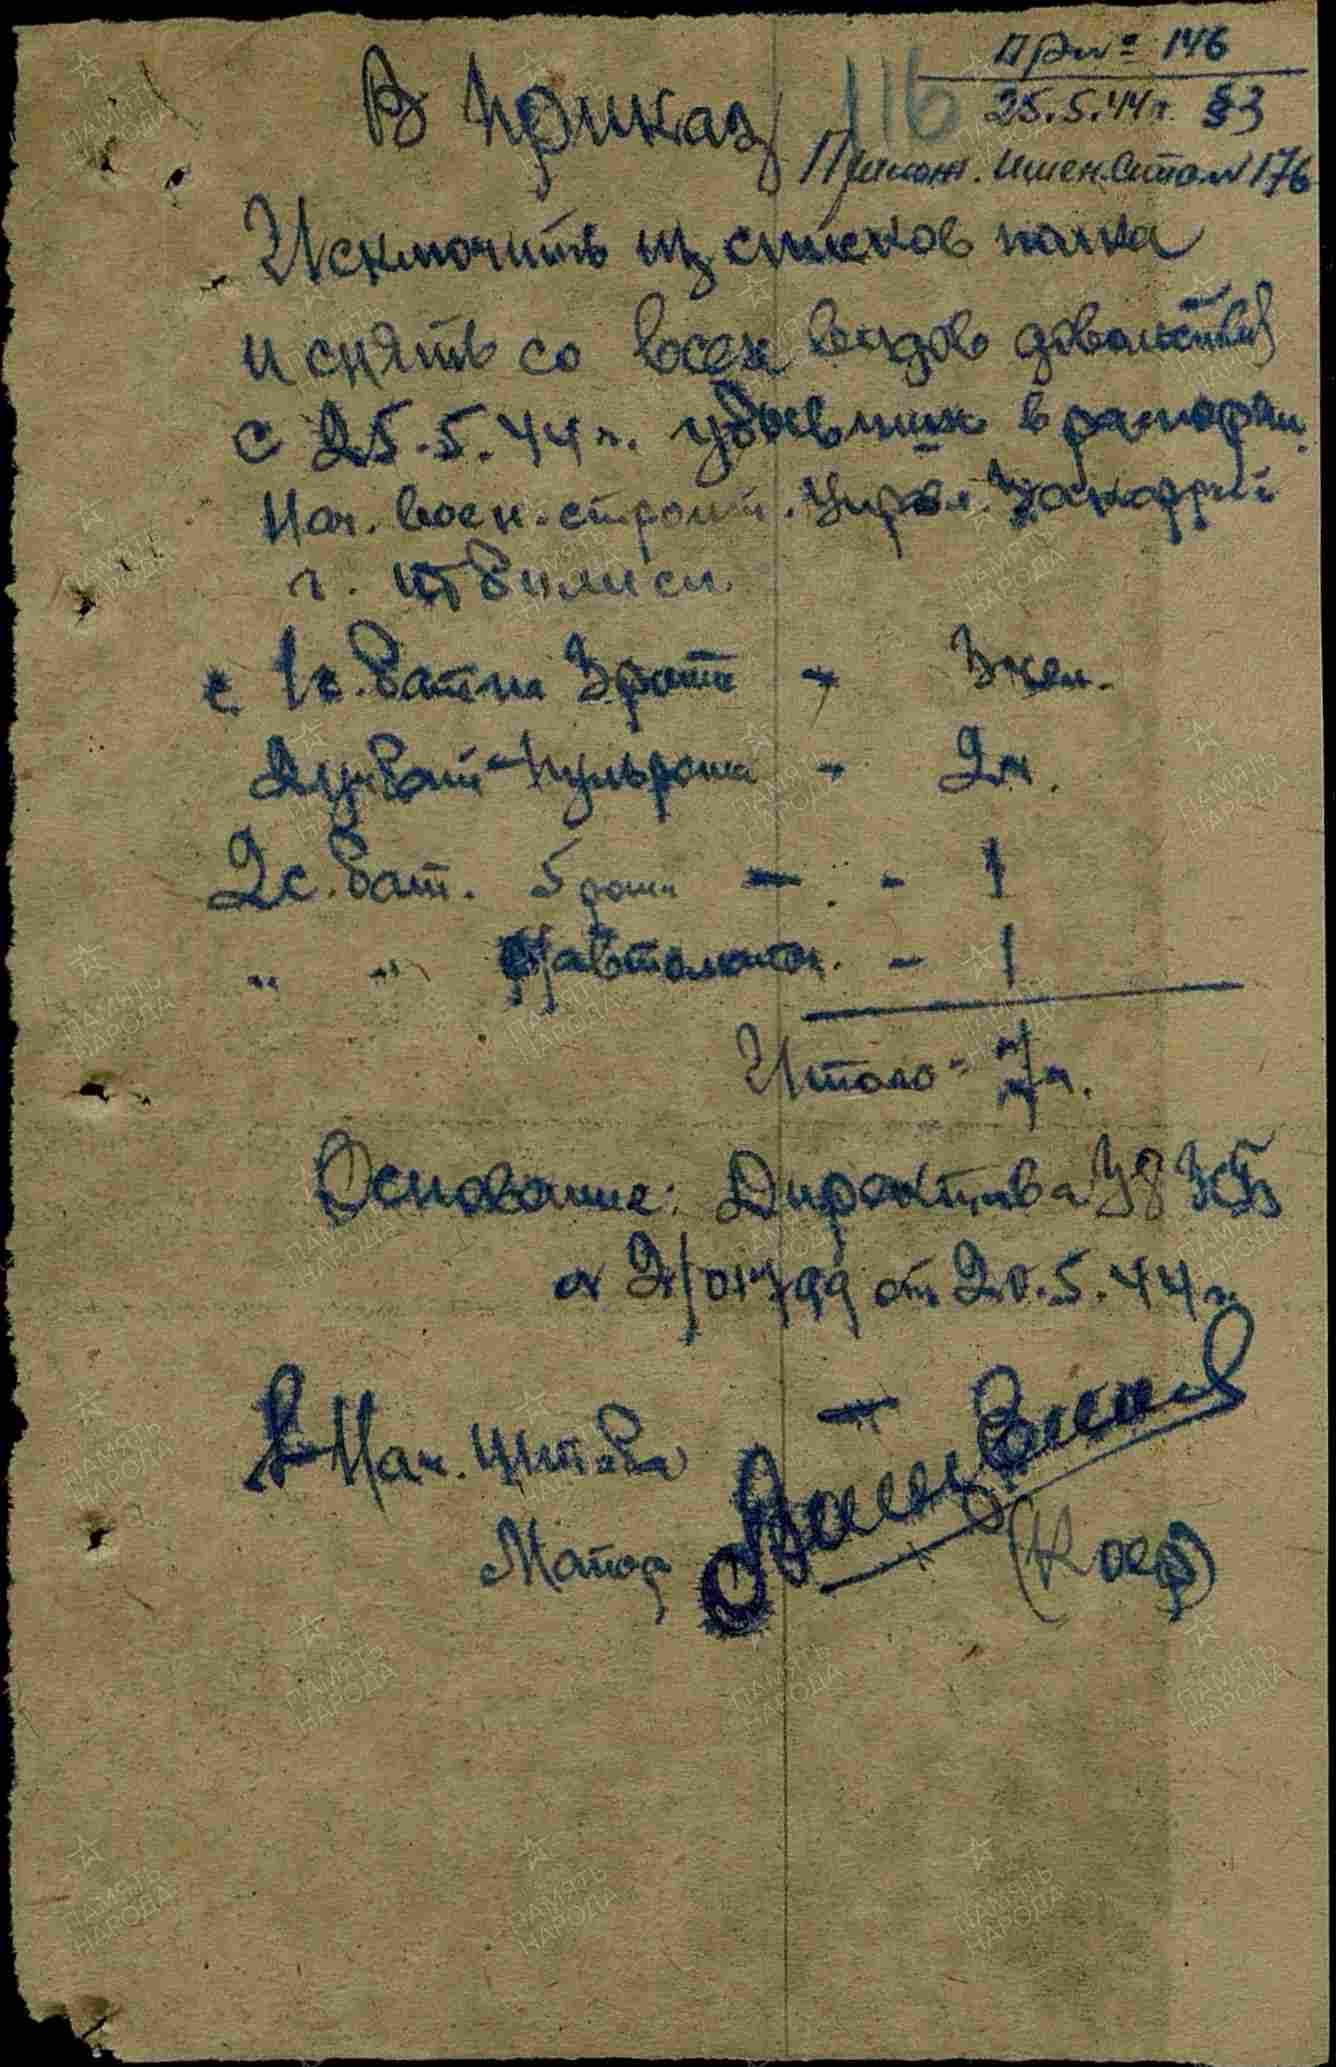 Пр № 146
25.5.44 г. §3
116
В приказ
Прилож. имен. список 176
Исключить из списков полка
и снять со всех видов довольствия
с 25.5.44 г. убывших в распоряж.
Нач. воен. строит. Управл. Закфронт
г. Тбилиси
с 1 с. бат-на 3 роты - 3 чел.
Луч. бат - пульрота - 2 ч.
2 с. бат. 5 роты - - 1
" " р/автоматч. - 1
Итого - 7 ч.
Основание: Директива УФ ЗКФ
№ 2/01799 от 20.5.44 г.
Нач. штаба
Майор